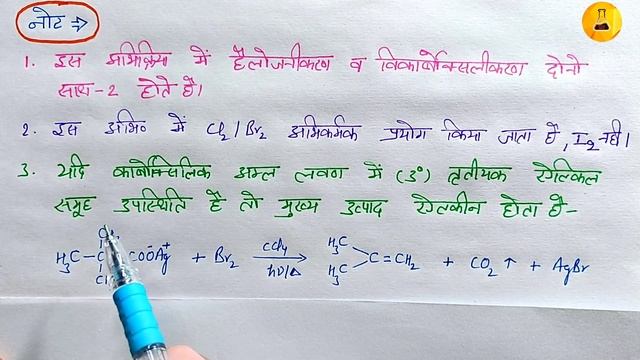 नोट ⇒
1. इस अभिक्रिया में हैलोजनीकरण व विकार्बोक्सिलीकरण दोनो
साथ-2 होते है।
2. इस अभि० में Cl₂/Br₂ अभिकर्मक प्रयोग किया जाता है, I₂ नही।
3. यदि कार्बोक्सिलिक अम्ल लवण में (3°) तृतीयक ऐल्किल
समूह उपस्थिति है तो मुख्य उत्पाद ऐल्कीन होता है-
H₃C-C COŌAg⁺ + Br₂ →(CCl₄, hν/Δ) H₃C H₃C >C=CH₂ + CO₂↑ + AgBr